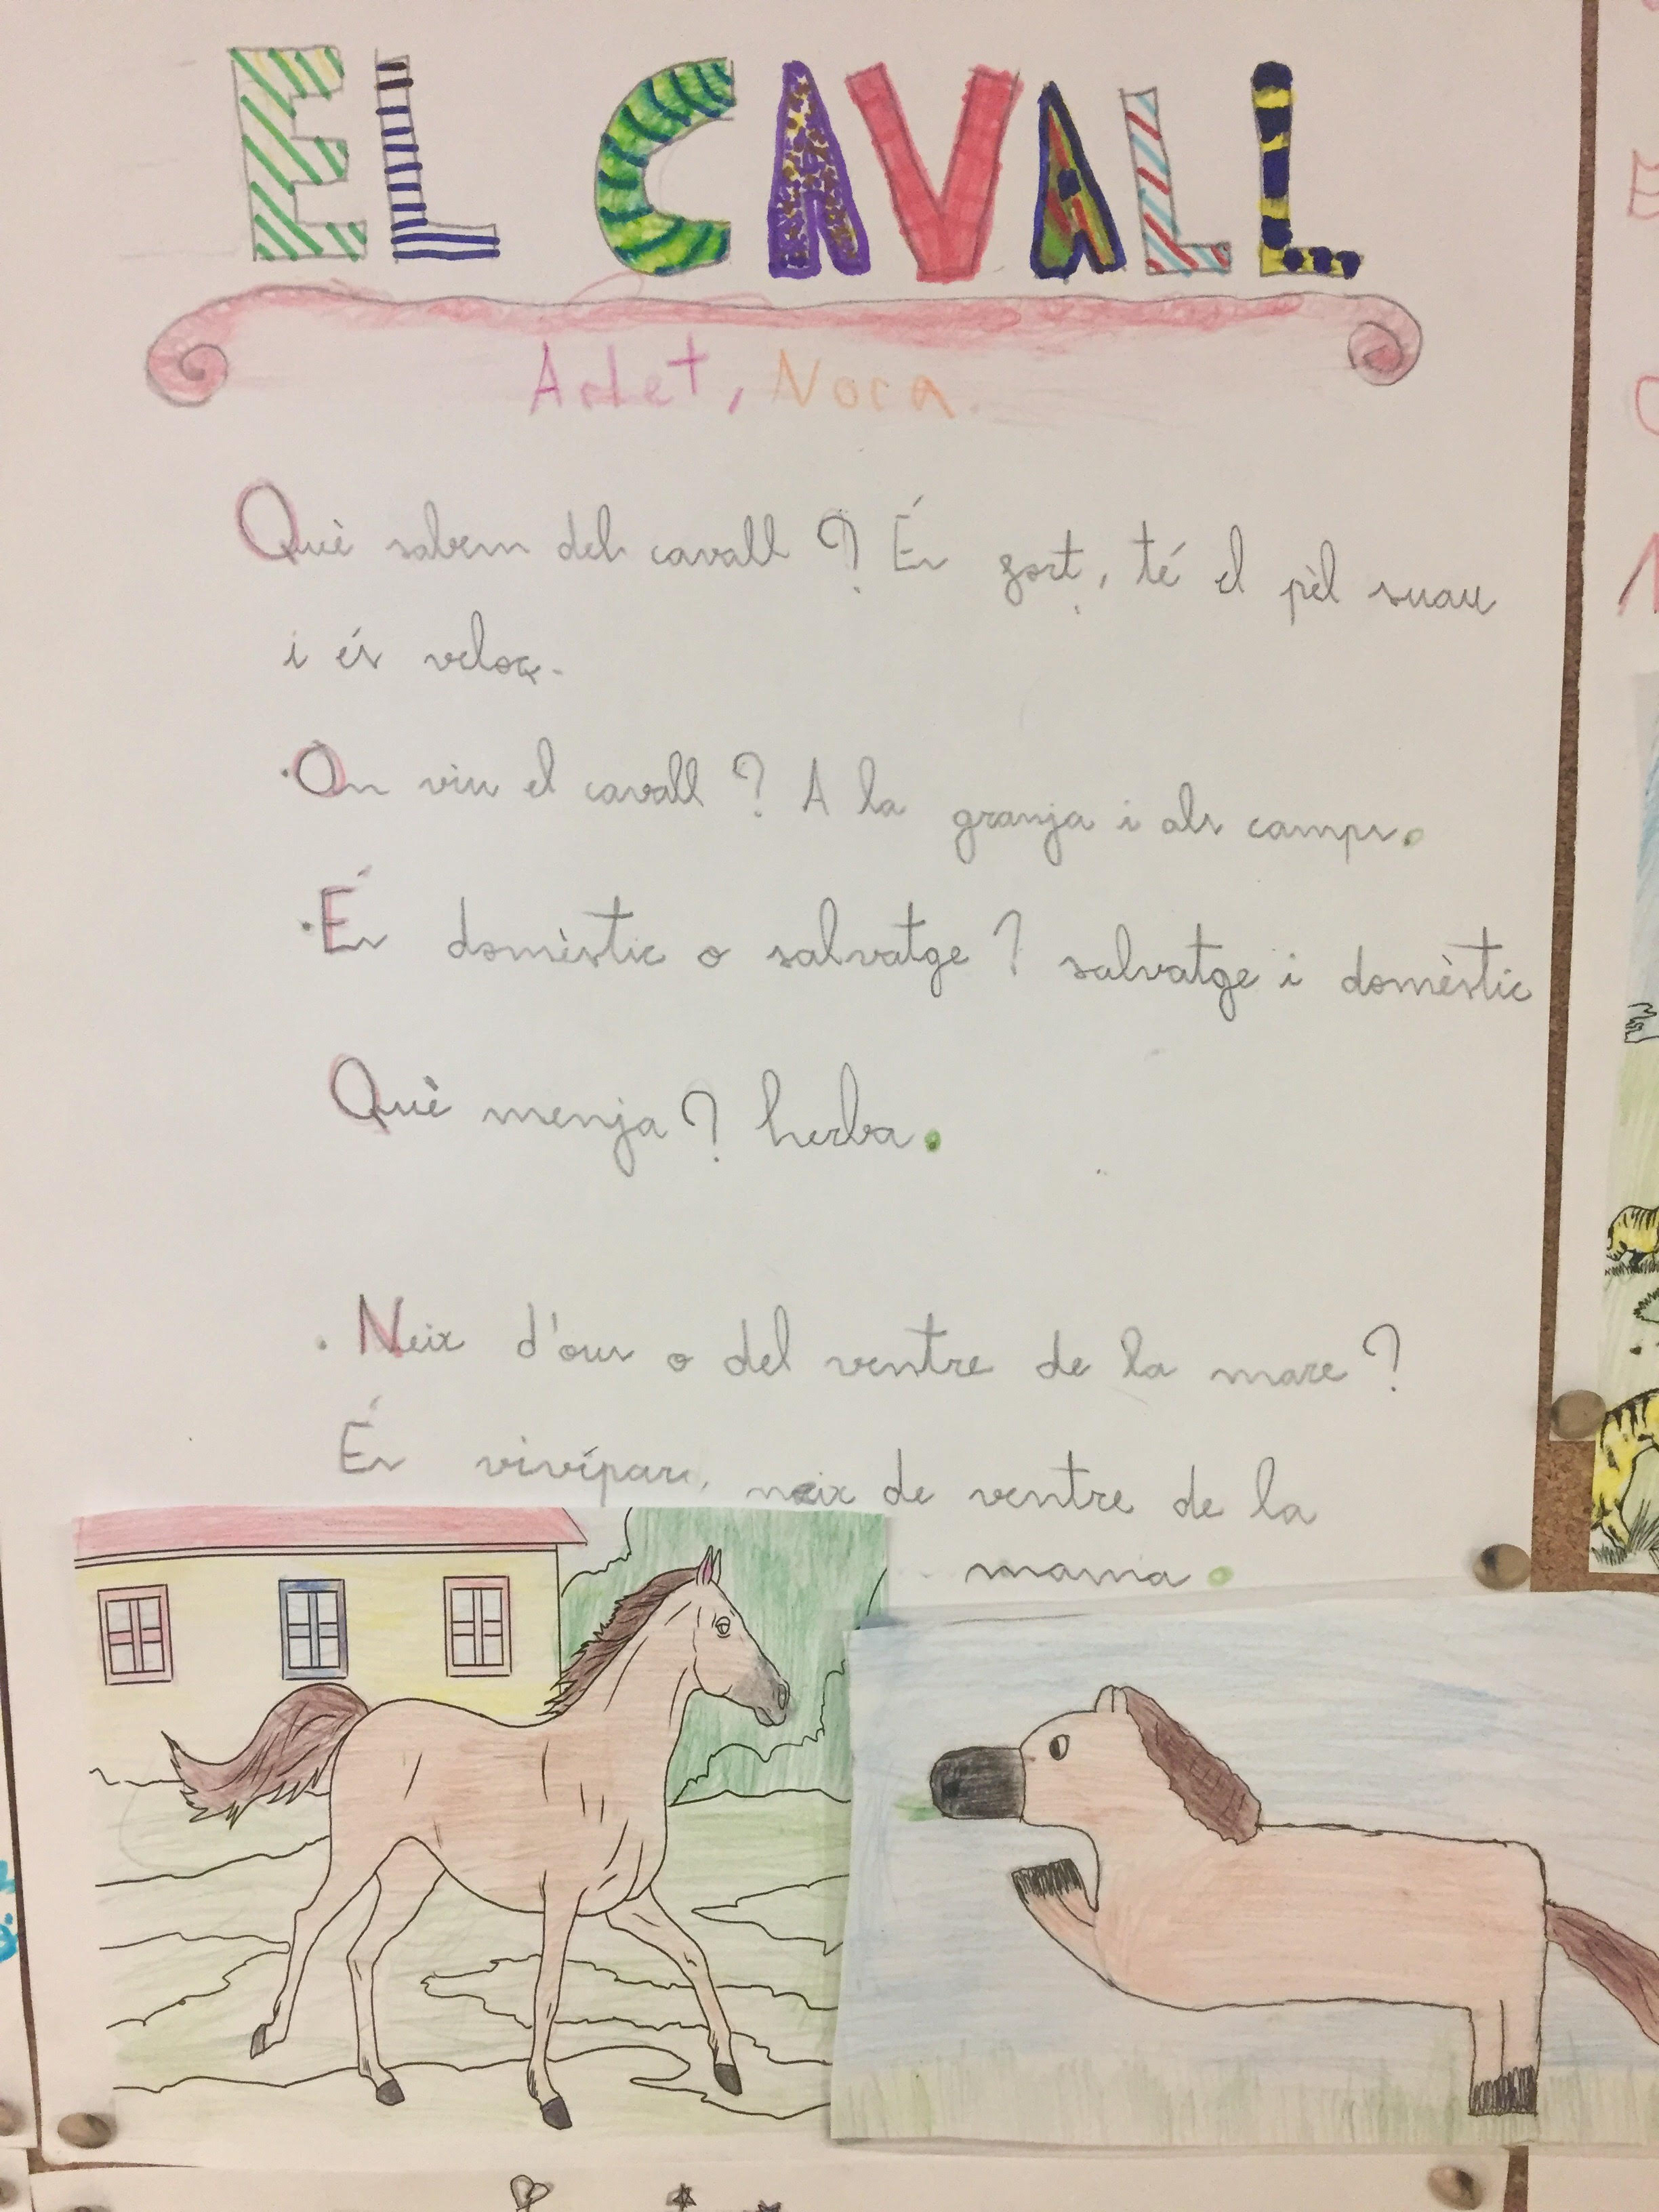 EL CAVALL
Arlet, Nora.
Què sabem del cavall? És fort, té el pèl suau
i és veloç.
·On viu el cavall? A la granja i als camps.
·És domèstic o salvatge? salvatge i domèstic
Què menja? herba.
·Neix d'ous o del ventre de la mare?
És vivípar, neix de ventre de la
mama.